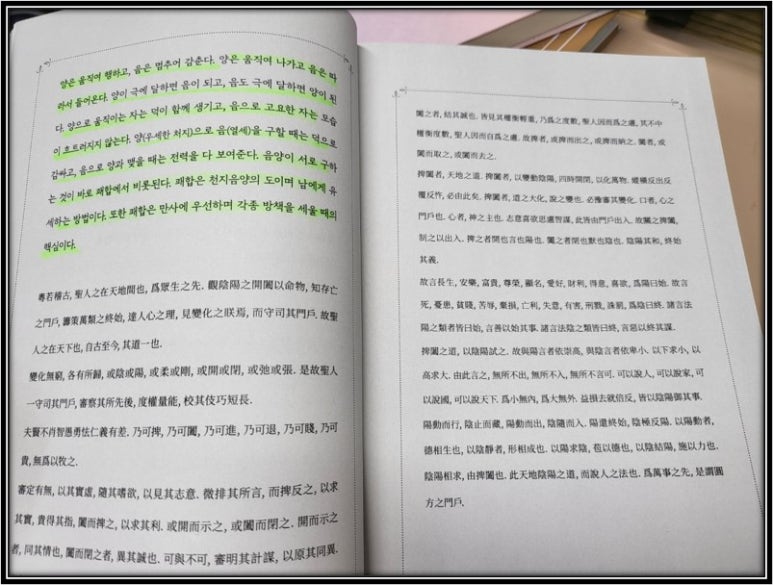 양은 움직여 행하고, 음은 멈추어 감춘다. 양은 움직여 나가고 음은 따
라서 들어온다. 양이 극에 달하면 음이 되고, 음도 극에 달하면 양이 된
다. 양으로 움직이는 자는 덕이 함께 생기고, 음으로 고요한 자는 모습
이 흐트러지지 않는다. 양(우세한 처지)으로 음(열세)을 구할 때는 덕으로
감싸고, 음으로 양과 맺을 때는 전력을 다 보여준다. 음양이 서로 구하
는 것이 바로 패합에서 비롯된다. 패합은 천지음양의 도이며 남에게 유
세하는 방법이다. 또한 패합은 만사에 우선하며 각종 방책을 세울 때의
핵심이다.
粤若稽古, 聖人之在天地間也, 爲眾生之先. 觀陰陽之開闔以命物, 知存亡
之門戶, 籌策萬類之終始, 達人心之理, 見變化之朕焉, 而守司其門戶. 故聖
人之在天下也, 自古至今, 其道一也.
變化無窮, 各有所歸, 或陰或陽, 或柔或剛, 或開或閉, 或弛或張. 是故聖人
一守司其門戶, 審察其所先後, 度權量能, 校其伎巧短長.
夫賢不肖智愚勇怯仁義有差. 乃可捭, 乃可闔, 乃可進, 乃可退, 乃可賤, 乃可
貴, 無爲以牧之.
審定有無, 以其實虛, 隨其嗜欲, 以見其志意. 微排其所言, 而捭反之, 以求
其實, 貴得其指, 闔而捭之, 以求其利. 或開而示之, 或闔而閉之. 開而示之
者, 同其情也, 闔而閉之者, 異其誠也. 可與不可, 審明其計謀, 以原其同異.
闔之者, 結其誠也. 皆見其權衡輕重, 乃爲之度數, 聖人因而爲之慮, 其不中
權衡度數, 聖人因而自爲之慮. 故捭者, 或捭而出之, 或捭而納之. 闔者, 或
闔而取之, 或闔而去之.
捭闔者, 天地之道. 捭闔者, 以變動陰陽, 四時開閉, 以化萬物. 縱橫反出反
覆反忤, 必由此矣. 捭闔者, 道之大化, 說之變也. 必豫審其變化. 口者, 心之
門戶也. 心者, 神之主也. 志意喜欲思慮智謀, 此皆由門戶出入. 故關之捭闔,
制之以出入. 捭之者開也言也陽也. 闔之者閉也默也陰也. 陰陽其和, 終始
其義.
故言長生, 安樂, 富貴, 尊榮, 顯名, 愛好, 財利, 得意, 喜欲, 爲陽曰始. 故言
死, 憂患, 貧賤, 苦辱, 棄損, 亡利, 失意, 有害, 刑戮, 誅罰, 爲陰曰終. 諸言法
陽之類者皆曰始, 言善以始其事. 諸言法陰之類者皆曰終, 言惡以終其謀.
捭闔之道, 以陰陽試之. 故與陽言者依崇高, 與陰言者依卑小. 以下求小, 以
高求大. 由此言之, 無所不出, 無所不入, 無所不言可. 可以說人, 可以說家, 可
以說國, 可以說天下. 爲小無內, 爲大無外. 益損去就倍反, 皆以陰陽御其事.
陽動而行, 陰止而藏, 陽動而出, 陰隨而入. 陽還終始, 陰極反陽. 以陽動者,
德相生也, 以陰靜者, 形相成也. 以陽求陰, 苞以德也, 以陰結陽, 施以力也.
陰陽相求, 由捭闔也. 此天地陰陽之道, 而說人之法也. 爲萬事之先, 是謂圓
方之門戶.